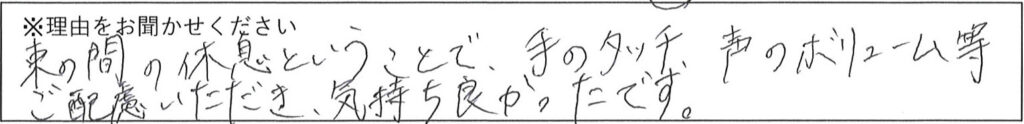 ※理由をお聞かせください
束の間の休息ということで、手のタッチ 声のボリューム等
ご配慮いただき、気持ち良かったです。